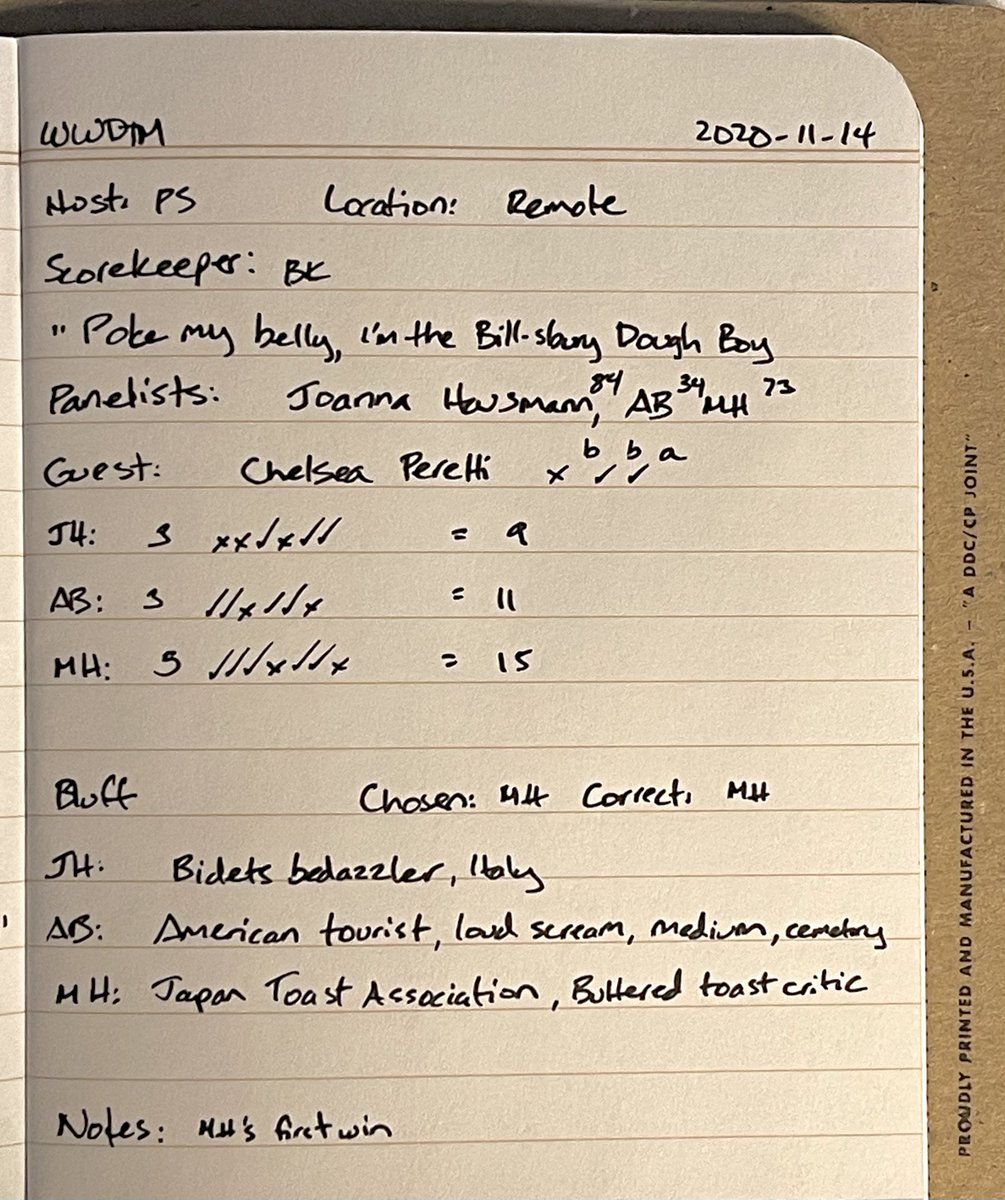 WWDTM 2020-11-14
Host: PS Location: Remote
Scorekeeper: BK
" Poke my belly, I'm the Bill-sbury Dough Boy
Panelists: Joanna Hausmann, 84 AB 34 MH 73
Guest: Chelsea Peretti x b✓ b✓ a
JH: 3 xx✓x✓✓ = 9
AB: 3 ✓✓x✓✓x = 11
MH: 5 ✓✓✓x✓✓x = 15
Bluff Chosen: MH Correct: MH
JH: Bidets bedazzler, Italy
AB: American tourist, loud scream, medium, cemetery
MH: Japan Toast Association, Buttered toast critic
Notes: MH's first win
PROUDLY PRINTED AND MANUFACTURED IN THE U.S.A. — "A DDC/CP JOINT"